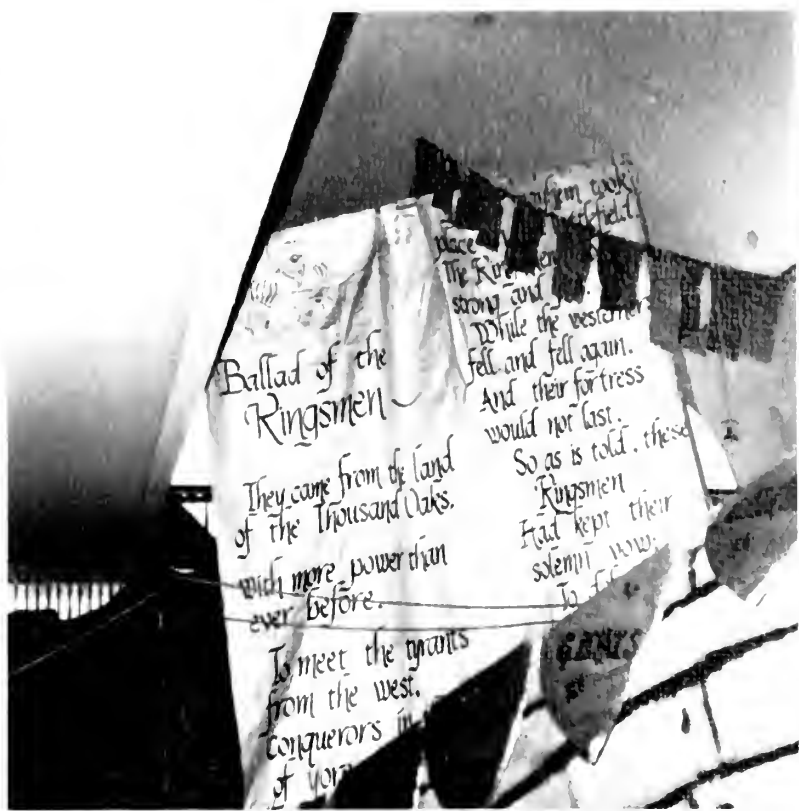 Ballad of the
Kingsmen
They came from the land
of the Thousand Oaks.
with more power than
ever before.
To meet the tyrants
from the west.
conquerors in
of
took
place
The
strong and
While the westerner
fell and fell again.
And their fortress
would not last.
So as is told, these
Kingsmen
Had kept their
solemn vow.
To